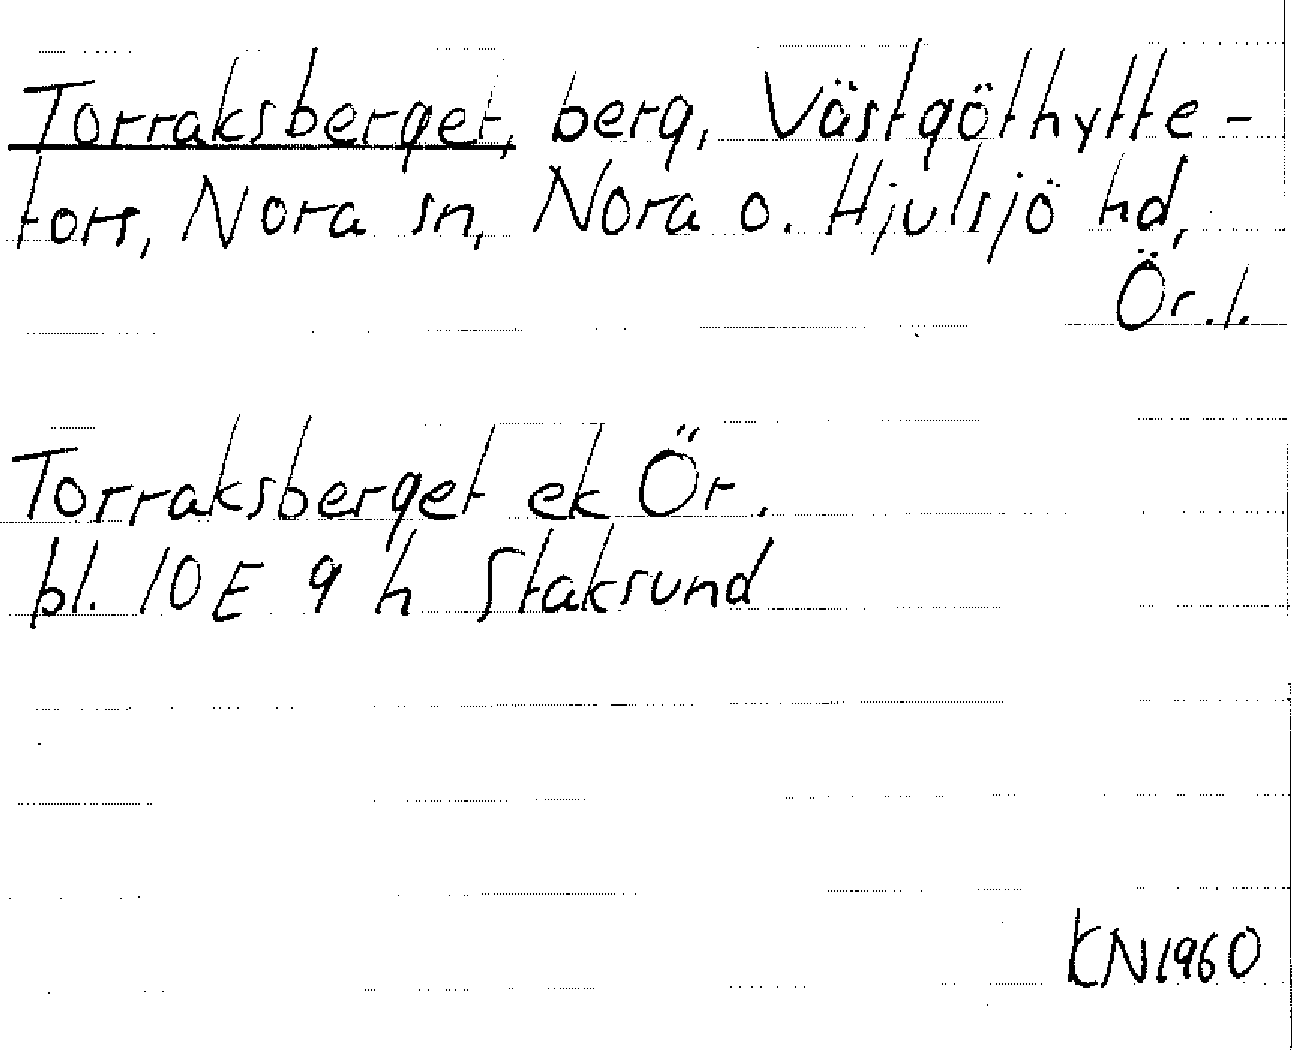 Torraksberget, berg, Västgöthytte-
fors, Nora sn, Nora o. Hjulsjö hd,
Ör. l.
Torraksberget ek Ör.
bl. 10E 9 h Staksund
KN 1960